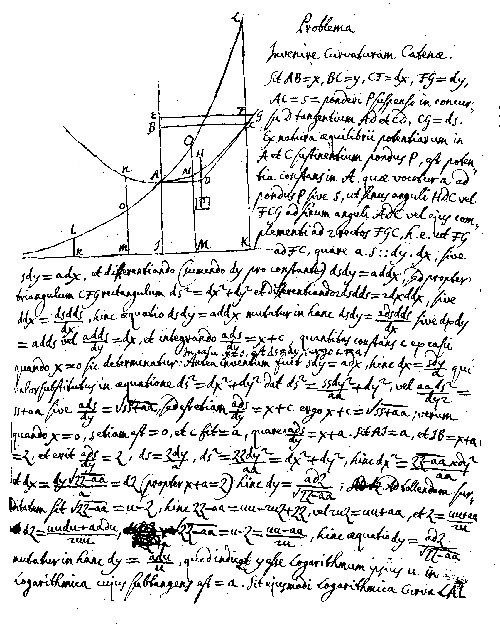 Problema
Invenire Curvaturam Catenæ.
Sit AB=x, BC=y, CF=dx, FG=dy,
AC=s=ponderi P suspenso in concur-
su D tangentium AD et CD, CG=ds.
Ex natura æquilibrii potentiarum in
A et C sustinentium pondus P, est poten-
tia constans in A, quæ vocetur a ad
pondus P sive s, ut sinus anguli HDC vel
FCG ad sinum anguli ADC vel ejus com-
plementi ad 2 rectos FGC, h.e. ut FG
ad FC, quare a.s::dy.dx, sive
sdy=adx, et differentiando (sumendo dy pro constante) dsdy=addx, sed propter
triangulum CFG rectangulum ds²=dx²+dy² et differentiando 2dsdds=2dxddx, sive
ddx=dsdds/dx, hinc æquatio dsdy=addx mutatur in hanc dsdy=adsdds/dx sive dxdy
=adds vel adds/dy=dx, et integrando ads/dy=x+c, quantitas constans c ex casu
quando x=0 sic determinatur: Antea inventum fuit sdy=adx, hinc dx=sdy/a, qui
valor substitutus in æquatione ds²=dx²+dy² dat ds²=ssdy²/aa+dy², vel aads²/dy²=
ss+aa sive ads/dy=√ss+aa, sed est etiam ads/dy=x+c. ergo x+c=√ss+aa, verum
quando x=0, s etiam est=0, et c fit=a, quare ads/dy=x+a. Sit AI=a, et IB=x+a
=z, et erit ads/dy=z, ds=zdy/a, ds²=zzdy²/aa=dx²+dy², hinc dx²=zz-aa×dy²/aa
et dx=dy√zz-aa/a=dz (propter x+a=z) hinc dy=adz/√zz-aa; Ad tollendam sur-
ditatem sit √zz-aa=u-z, hinc zz-aa=uu-2uz+zz, vel 2uz=uu+aa, et z=uu+aa/2u
dz=uudu-aadu/2uu, √zz-aa=u-z=uu-aa/2u, hinc æquatio dy=adz/√zz-aa
mutatur in hanc dy=adu/u, quod indicat y esse Logarithmum ipsius u in
Logarithmica cujus subtangens est=a. Sit ejusmodi Logarithmica Curva LAL
L
E
F
G
B
C
Q
H
A
N
D
P
O
L
R
M
I
M
K